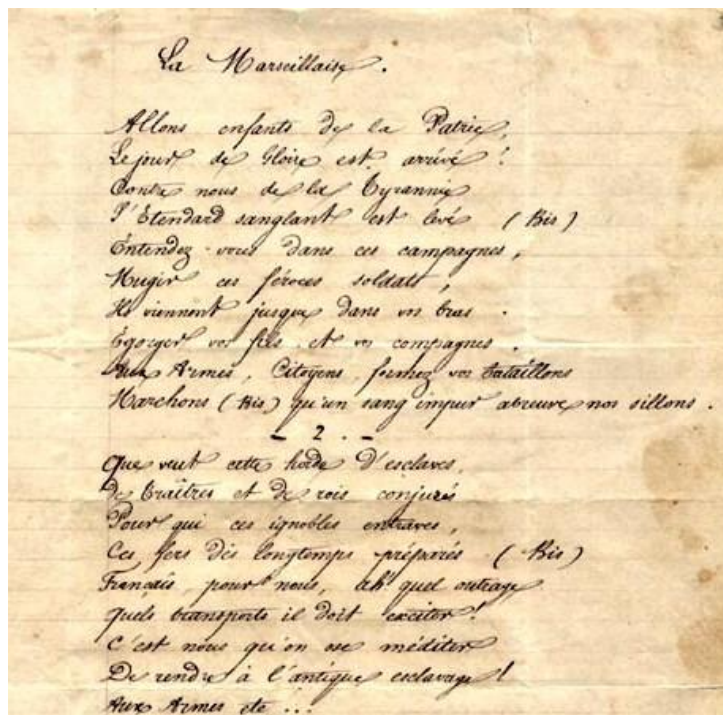 La Marseillaise.
Allons enfants de la Patrie,
Le jour de Gloire est arrivé !
Contre nous de la Tyrannie
L'Etendard sanglant est levé (Bis)
Entendez-vous dans ces campagnes,
Mugir ces féroces soldats,
Ils viennent jusque dans vos bras.
Égorger vos fils et vos compagnes.
Aux Armes, Citoyens, formez vos bataillons
Marchons (Bis) qu'un sang impur abreuve nos sillons.
- 2. -
Que veut cette horde D'esclaves,
de traîtres et de rois conjurés
Pour qui ces ignobles entraves,
Ces fers Dès longtemps préparés (Bis)
Français, pour nous, ah quel outrage
quels transports il doit exciter !
C'est nous qu'on ose méditer
De rendre à l'antique esclavage !
Aux Armes etc ...